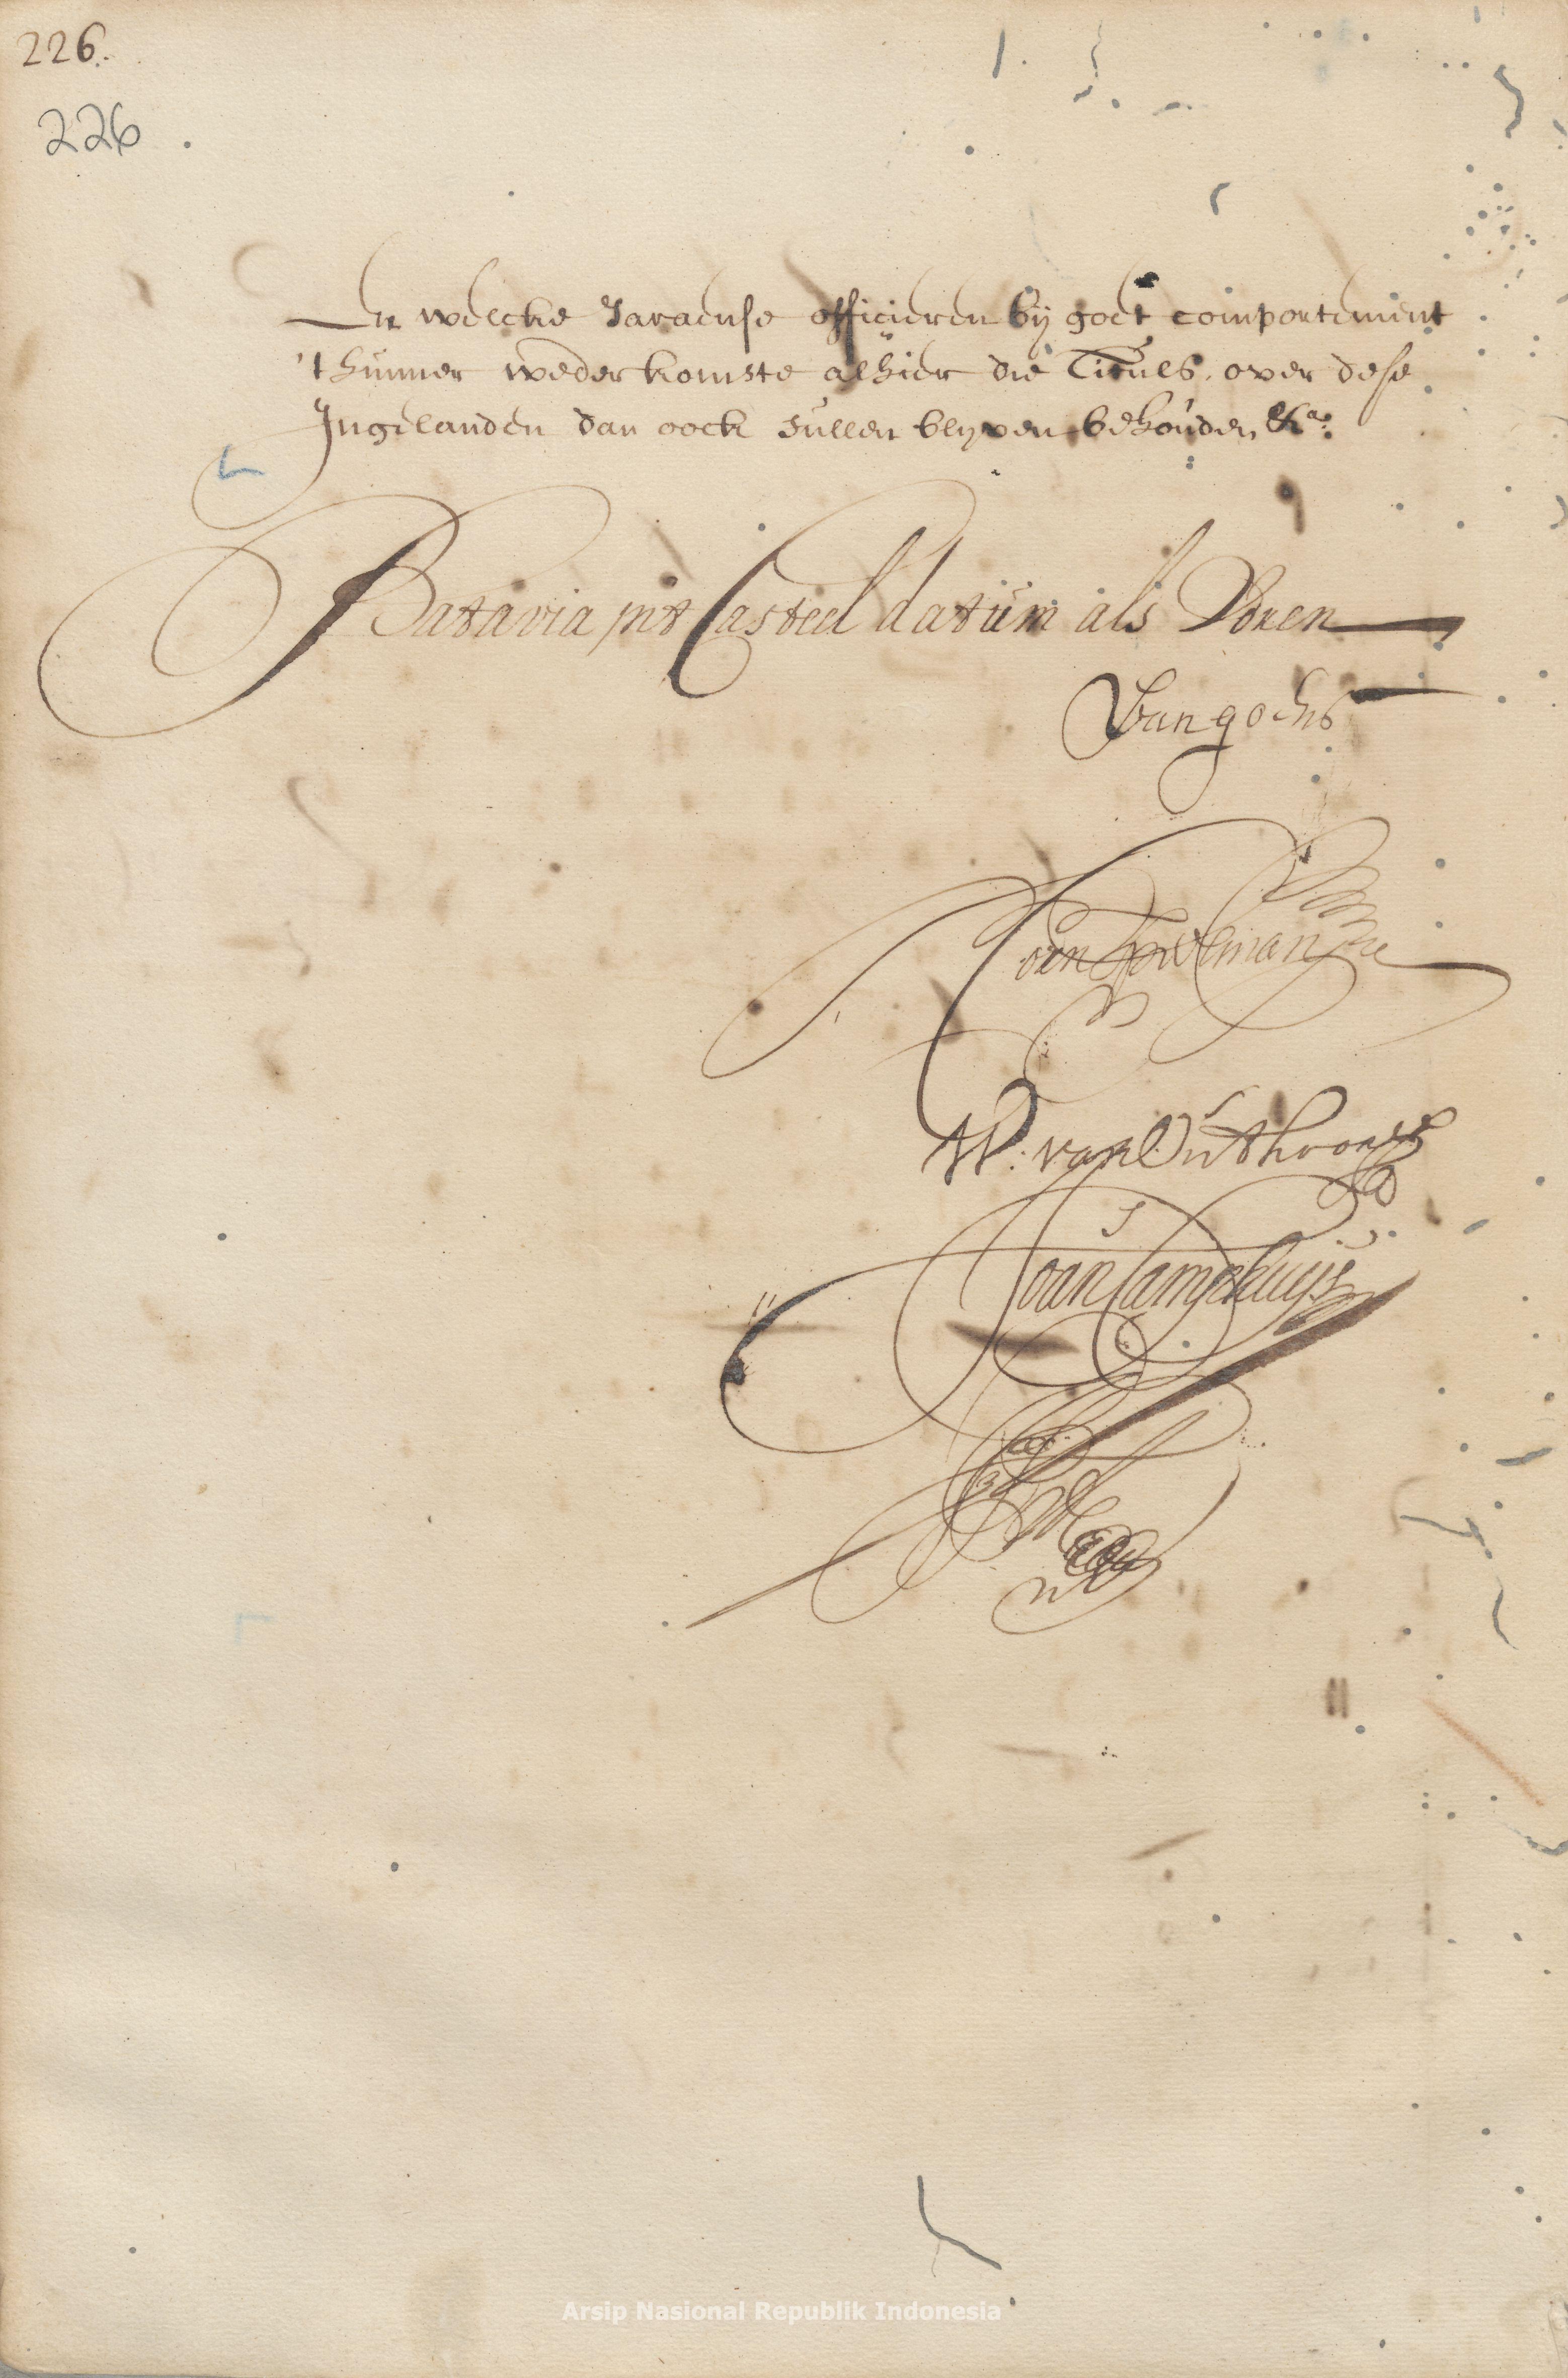 226.
226
En welcke Javaense officieren bij goet comportement
't hunner wederkomste alhier die Tituls, over dese
Ingelanden dan oock sullen blyven behouden, &a:
Batavia int Casteel datum als Voren
van Goens
W: van Outhoorn
Joan Camphuijs
Arsip Nasional Republik Indonesia